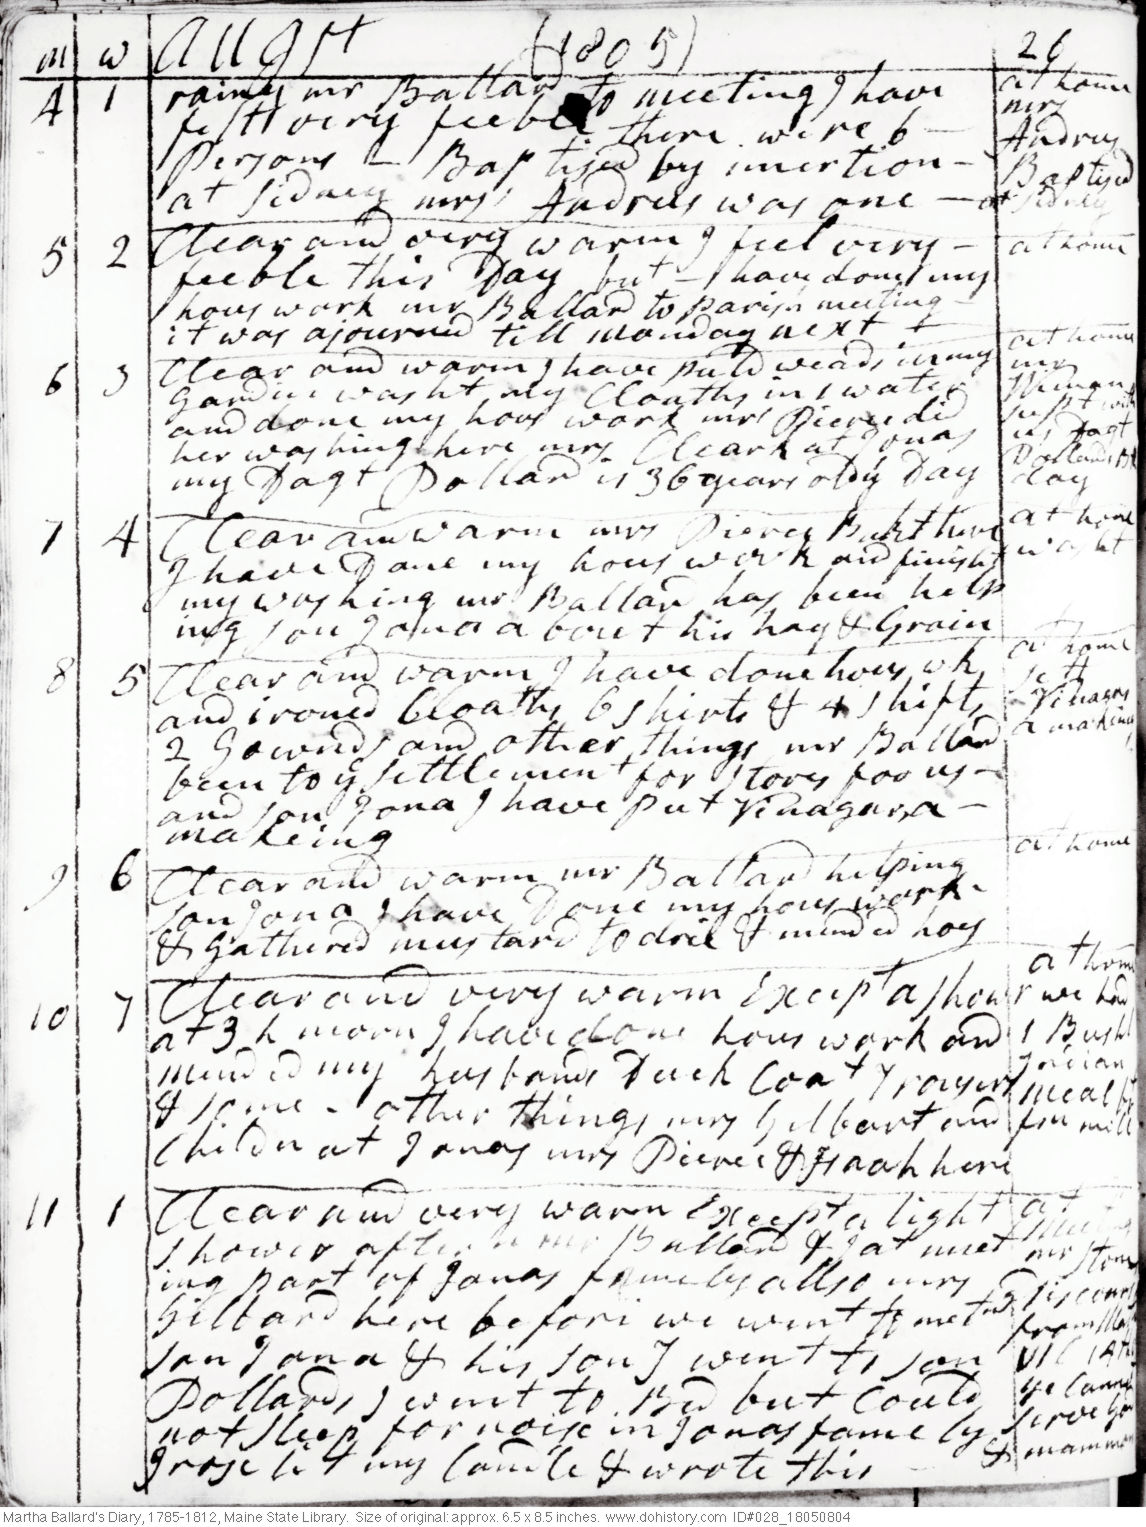 m w Augst (1805) 26
4 1 rainy mr Ballard to meeting I have
felt very feeble there were 6 –
Persons – Baptised by imertion –
at Sidney mrs Andrus was one –
at home
mrs
Andrus
Baptised
at Sidney
5 2 Clear and very warm I feel very –
feeble this Day but – I have done my
hous work mr Ballard to parish meeting –
it was ajourned till monday next +
at home
6 3 Clear and warm I have puld weads in my
Gardin washt my Cloaths in 1 water
and done my hous work mrs Pierce did
her washing here mrs Cleark at Jonas
my Dagt Pollard is 36 years old ys Day
at home
mrs
slept with
us Dagt
Day
7 4 Clear and warm mrs Pierce Bakt here
I have Done my hous work and finisht
my washing mr Ballard has been help
ing son Jona about his hay & Grain
at home
washt
8 5 Clear and warm I have done hous wk
and ironed Cloaths 6 shirts & 4 shifts
2 Gownds and other things mr Ballard
been to ys settlement for stores for us –
and son Jona I have put Vinagar a –
makeing
at home
sett
Vinagar
a making
9 6 Clear and warm mr Ballard helping
son Jona I have Done my hous work –
& Gathered mustard to drie & mended hoss
at home
10 7 Clear and very warm Except a shour
at 3 h morn I have done hous work and
mended my husbands Duck Coat Trowsers
& some – other things mrs Gilbart and
Childn at Jonas mrs Pierce & Isaah here
at home
we had
1 Bushl
Indian
meal
from mill
11 1 Clear and very warm Except a light
shower aftern mr Ballard & I at meet
ing part of Jonas famely allso mrs
Gilbard here before we went to met ng
son Jona & his son I went to son
Pollards, I went to Bed but Could
not sleep for noise in Jonas famely
I rose lit my Candle & wrote this –
at
meeting
mr Stone
Discours
from
ye Cannot
serve God
& mammon
Martha Ballard's Diary, 1785-1812, Maine State Library. Size of original: approx. 6.5 x 8.5 inches. www.dohistory.com ID#028_18050804